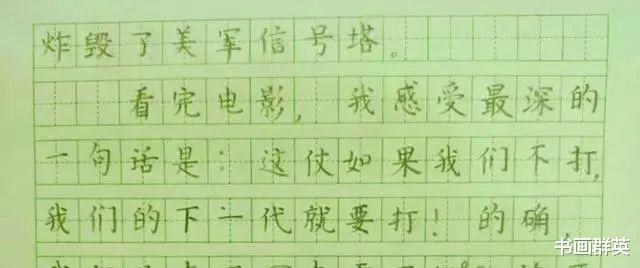 炸毁了美军信号塔。
看完电影，我感受最深的
一句话是：这仗如果我们不打，
我们的下一代就要打！的确，
书画群英